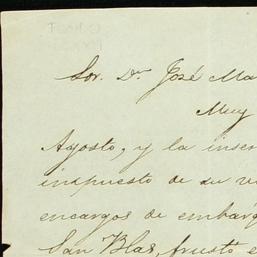 Sor. Dn. José Ma
Muy
Agosto, y la inser
impuesto de su
encargos de embarq
San Blas, frusto e